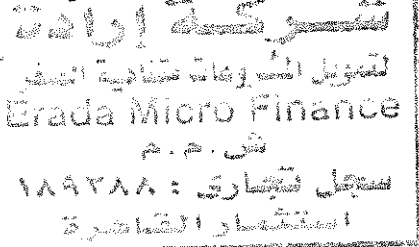 شركة إرادة
لتمويل المشروعات متناهية الصغر
Erada Micro Finance
ش . م . م
سجل تجارى : ١٨٩٢٨٨
استثمار القاهرة